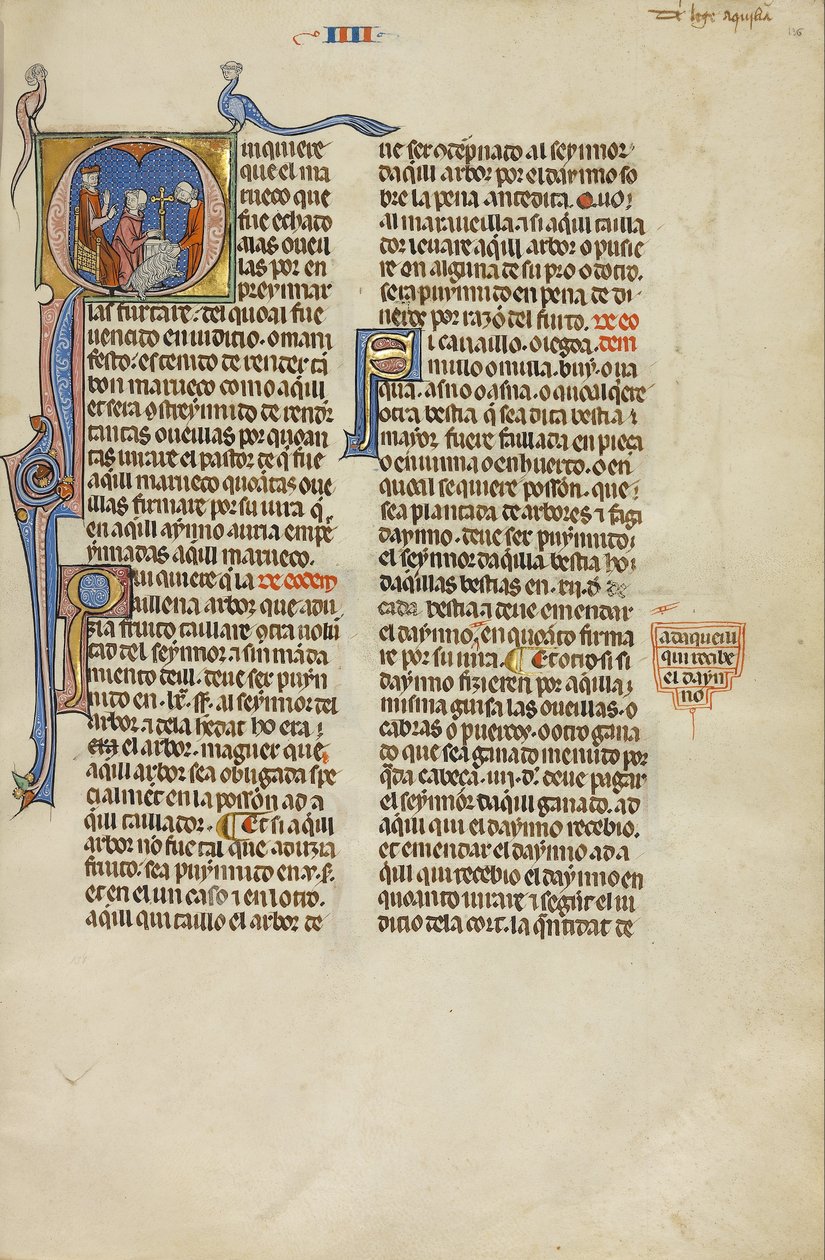 De lege aquilia
IIII
136
inquiere
que el ma
rueco que
fue echado
alas oueil
las por en
preynnar
las furtare. del quoal fue
uencido en iuditio. o mani
festo: es tenido de render tā
bon marueco como aq̄ill
et sera ꝯstreynnido de rendr̄
tantas oueillas por quoan
tas iurare el pastor de q̄ fue
aq̄ill marueco quoātas oue
illas firmare por su iura q̄.
en aq̄ill aynno auria empē
ynnadas aq̄ill marueco.
ui quiere q̄ la de eodem
aillena arbor que adu
zia fruito taillare ꝯtra uolū
tad del seynnor ⁊ sin māda
miento deill. deue ser puyn
nido en .lx. ss. al seynnor del
arbor. ⁊ dela hedat ho era
era el arbor. maguer que
aq̄ill arbor sea obligada spe
cialmēt en la possōn ad a
q̄ill taillador. Et si aq̄ill
arbor nō fue tal que aduzia
fruito. sea puynnido en .x. ss.
et en el un caso ⁊ en lotro.
aq̄ill qui taillo el arbor de
ue ser ꝯdēpnado al seynnor
daq̄ill arbor por el daynno so
bre la pena antedita. Quo
al maraueilla. ⁊ si aq̄ill tailla
dor leuare aq̄ill arbor o pusie
re en alguna de su pro o dotro.
sera puynnido en pena de di
neros por razō del furto. De eo
i cauaillo. o iegoa. dem
mullo o mula. buy. o ua
qua. asno o asna. o quoal q̄ere
otra bestia q̄ sea dita bestia
mayor fuere faillada en pieça
o en uinna o en huerto. o en
quoal se quiere possōn. que
sea plantada de arbores ⁊ faga
daynno. deue ser puynnido
el seynnor daq̄illa bestia ho
daq̄illas bestias en .xii. d̄ de
cada bestia ⁊ deue emendar
el daynno, en quoāto firma
re por su iura. Et otrosi si
daynno fizieren por aq̄illa
misma guisa las oueillas. o
cabras o puercos. o otro gana
do que sea ganado menudo por
q̄da cabeça .iii. d̄. deue pagar
el seynnor daq̄ill ganado. ad
aq̄ill qui el daynno recebio.
et emendar el daynno ad a
q̄ill qui recebio el daynno en
quoanto iurare ⁊ segūt el iu
ditio dela cort. la q̄ntidat de
ad aqueill
qui recibe
el dayn
no